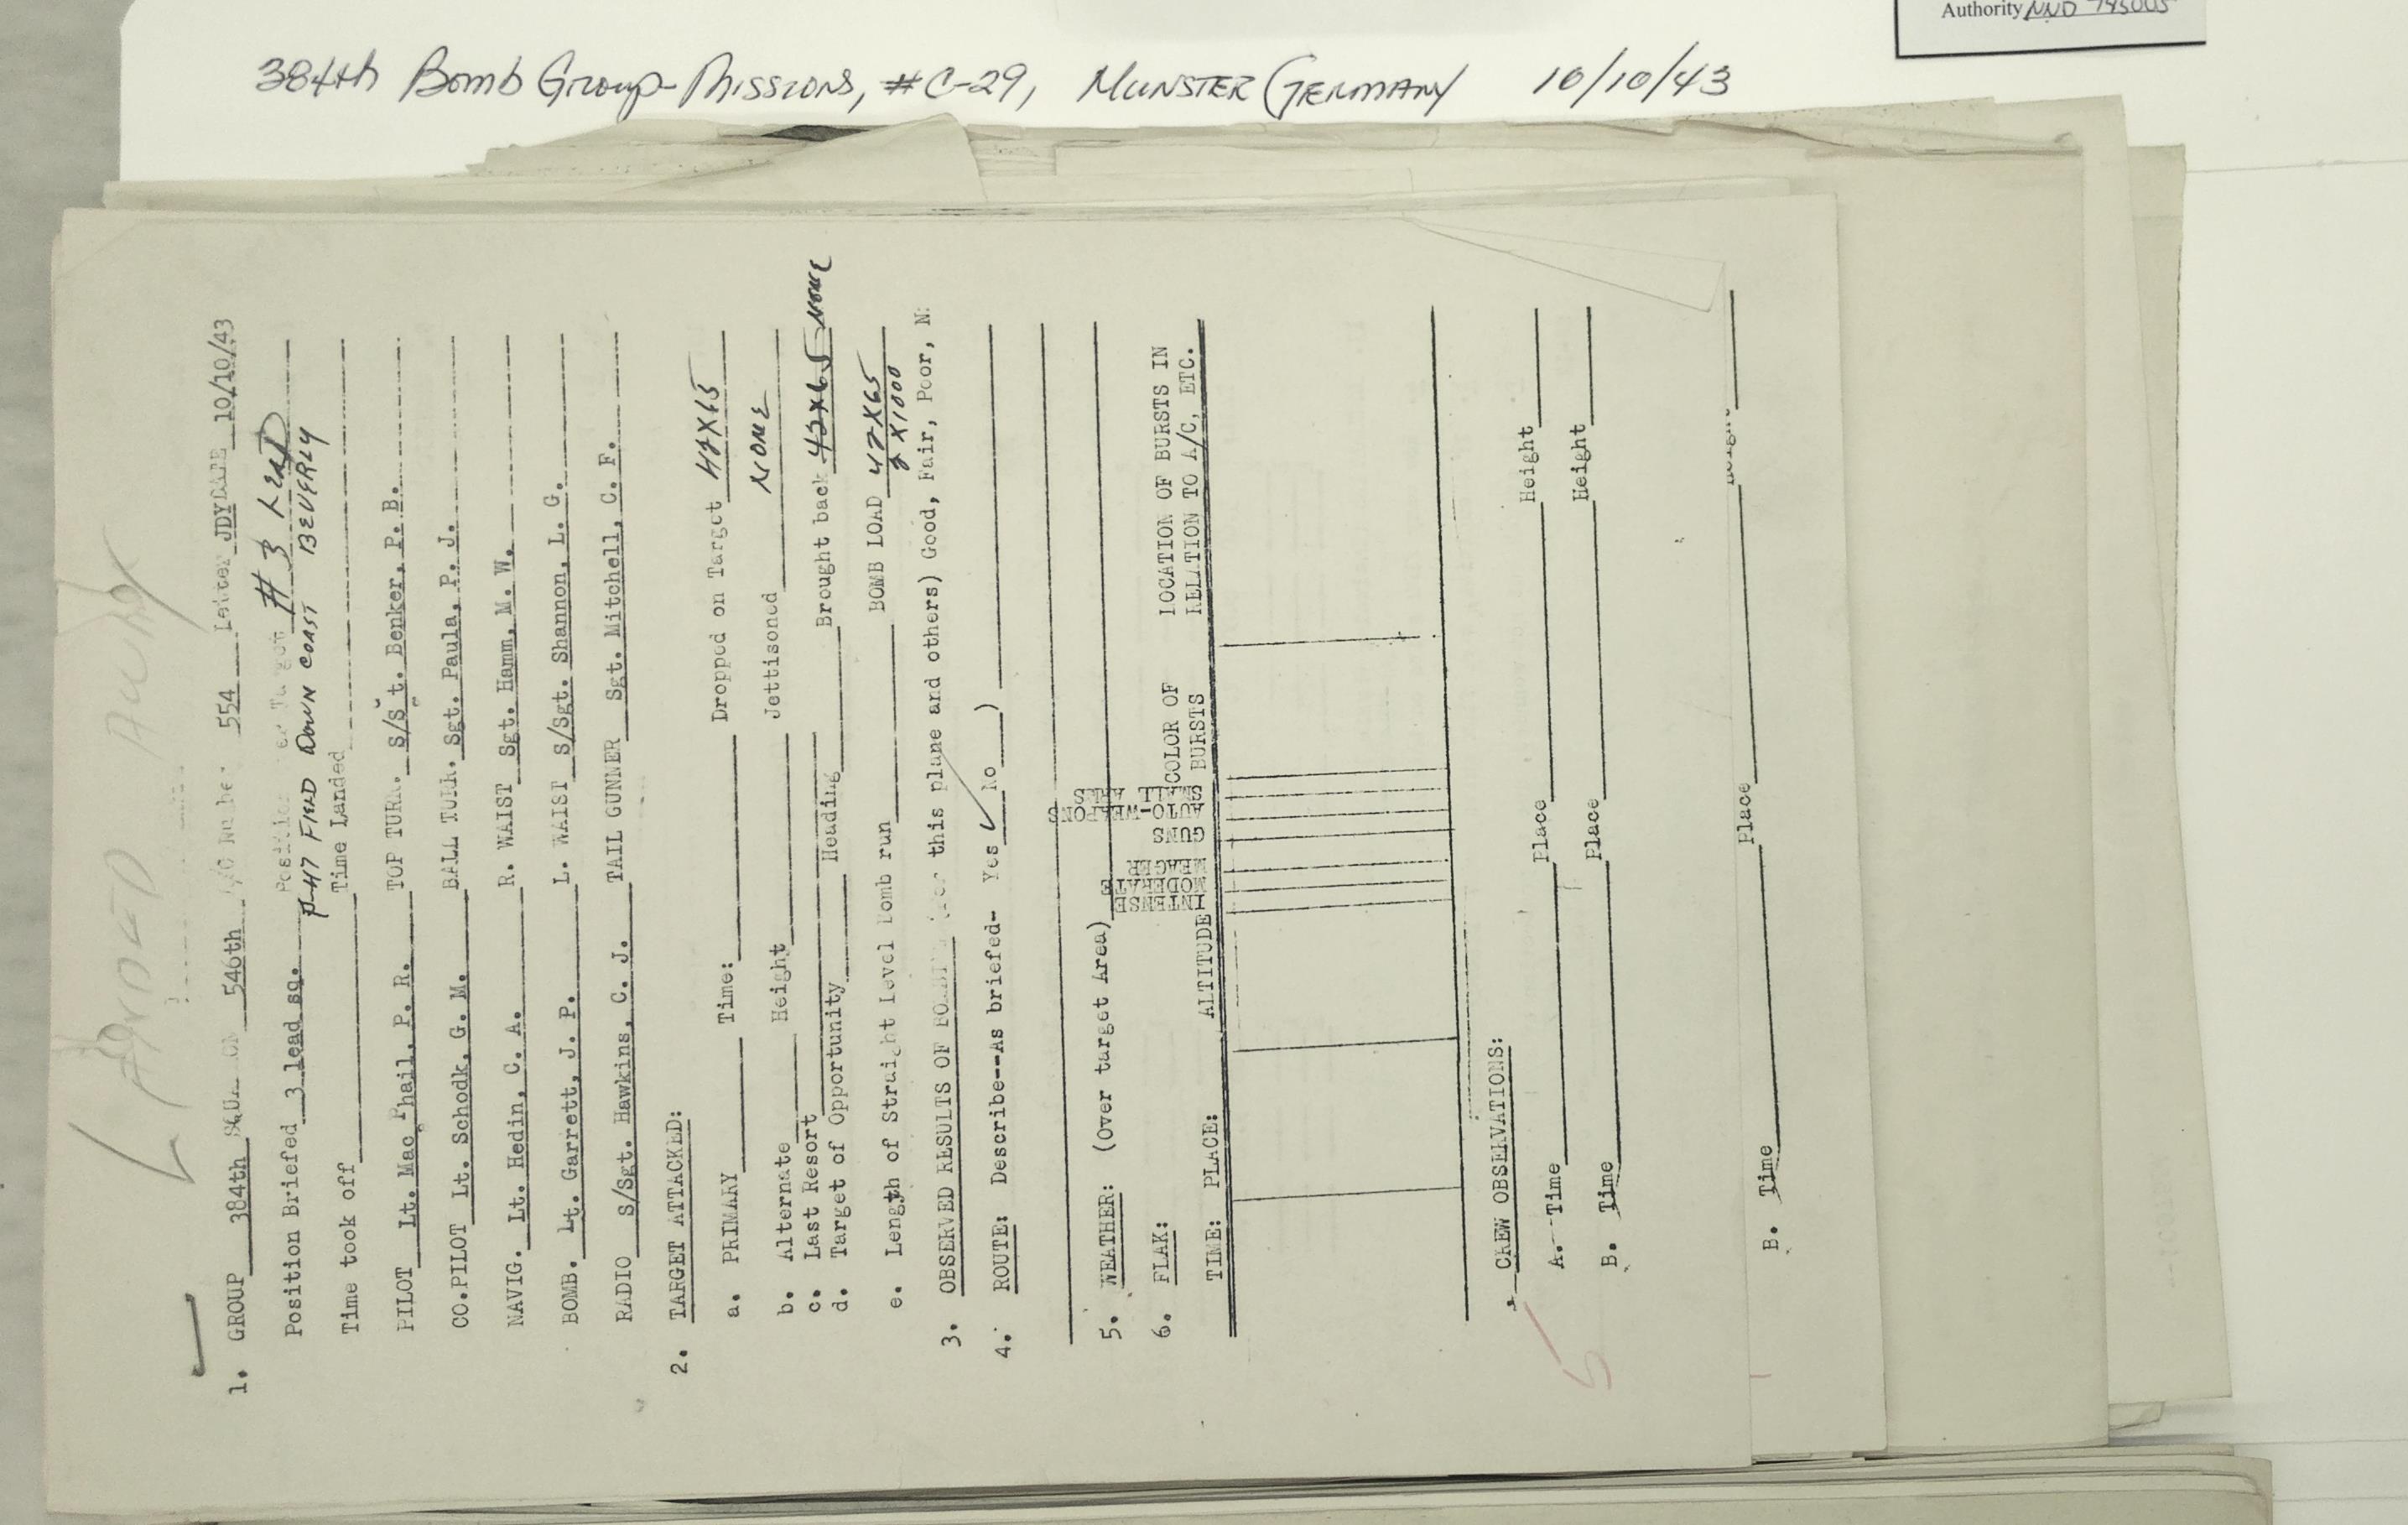 Authority NND 745005
384th Bomb Group-Missions, #C-29, Munster Germany 10/10/43
LANDED AWAY
1. GROUP 384th SQUADRON 546th A/C Number 554 Letter JDY DATE 10/10/43
Position Briefed 3 lead sq. Position over Target #3 LEAD
P-47 FIELD DOWN COAST BEVERLY
Time took off Time Landed
PILOT Lt. Mac Phail, P. R. TOP TURR. S/S t. Benker, P. B.
CO.PILOT Lt. Schodk, G. M. BALL TURR. Sgt. Paula, P. J.
NAVIG. Lt. Hedin, C. A. R. WAIST Sgt. Hamm, M. W.
BOMB. Lt. Garrett, J. P. L. WAIST S/Sgt. Shannon, L. G.
RADIO S/Sgt. Hawkins, C. J. TAIL GUNNER Sgt. Mitchell, C. F.
2. TARGET ATTACKED:
a. PRIMARY Time: Dropped on Target 42X65
b. Alternate Height Jettisoned NONE
c. Last Resort
d. Target of Opportunity Heading Brought back 42X65 NONE
e. Length of Straight Level Bomb run BOMB LOAD 42X65
2X1000
3. OBSERVED RESULTS OF BOMBING (for this plane and others) Good, Fair, Poor, N:
4. ROUTE: Describe--As briefed- Yes ✓ No )
5. WEATHER: (Over target Area)
6. FLAK:
TIME: PLACE: ALTITUDE INTENSE MODERATE MEAGER GUNS AUTO-WEAPONS SMALL ARMS COLOR OF BURSTS LOCATION OF BURSTS IN RELATION TO A/C, ETC.
CREW OBSERVATIONS:
A. Time Place Height
B. Time Place Height
5
B. Time Place Height